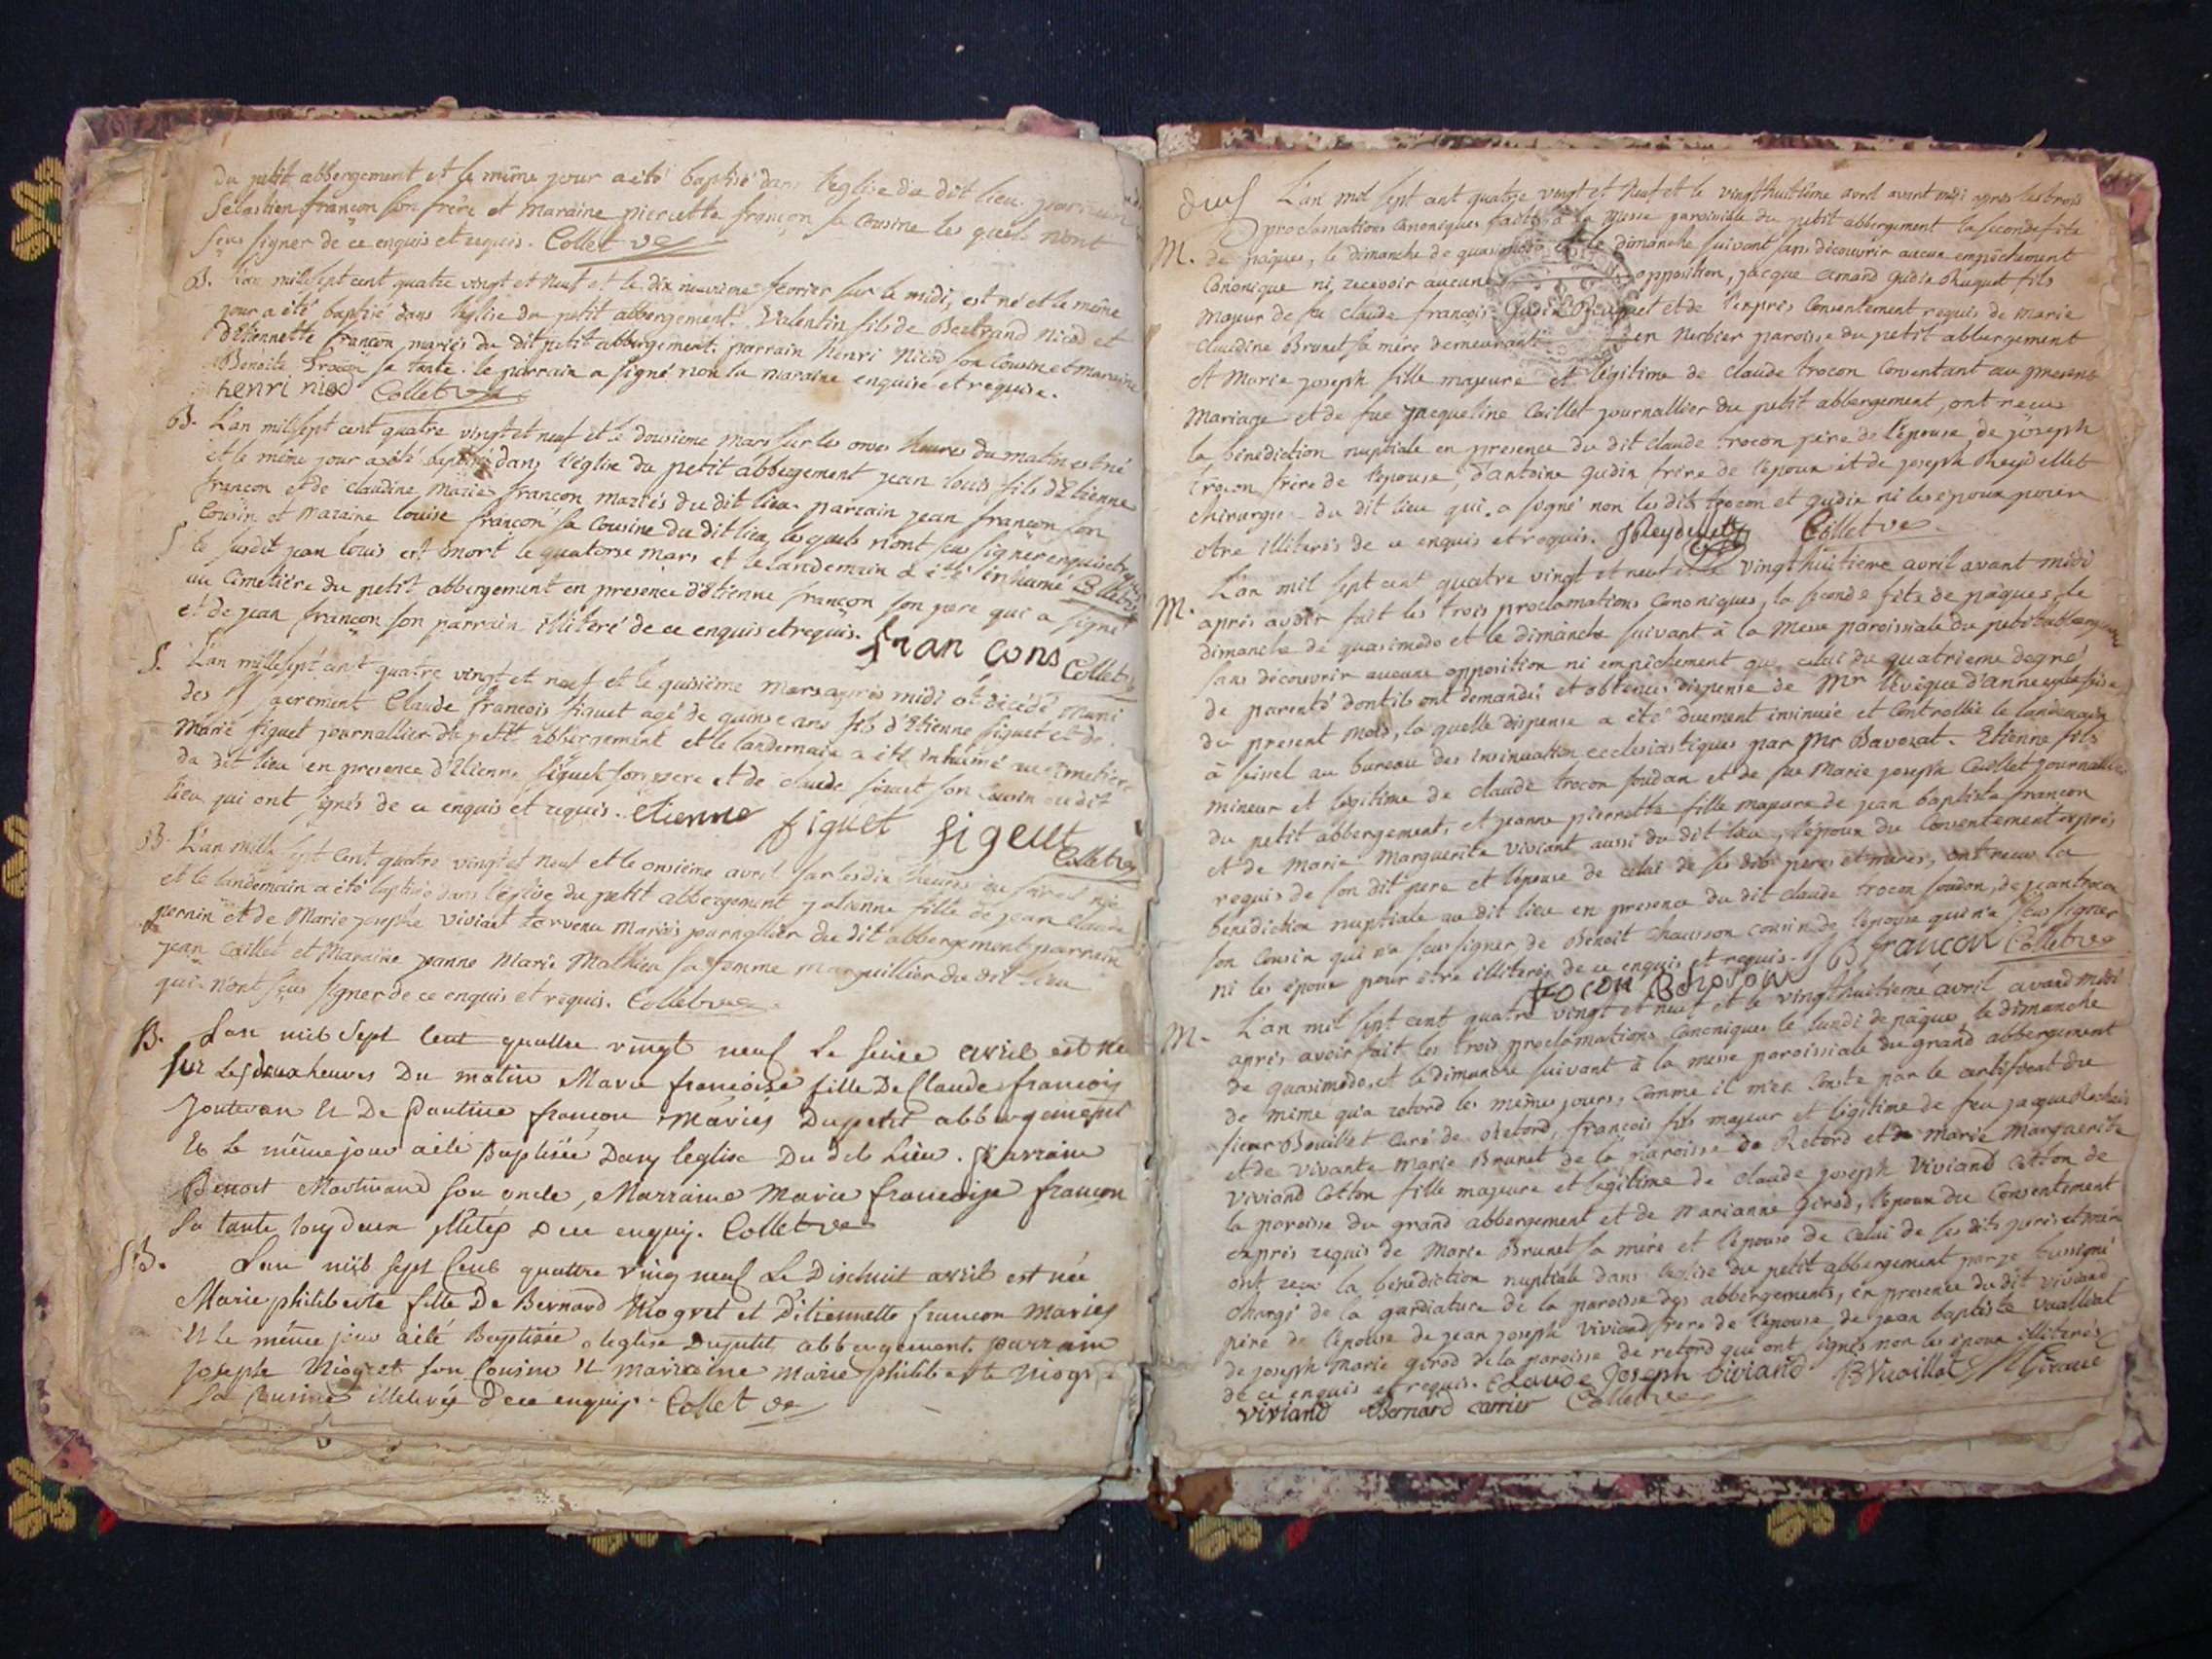 du petit abbergement et le même jour a été baptisé dans l'église du dit lieu parrain
Sébastien françon son frère et maraine pierrette françon sa cousine les quels n'ont
sçus signer de ce enquis et requis. Collet ve
B. L'an mil sept cent quatre vingt et neuf et le dix neuvième fevrier sur le midi, est né et le même
jour a été baptisé dans l'église du petit abbergement. Valentin fils de Bertrand Nicod et
d'Etiennette françon mariés du dit petit abbergement. parrain henri Nicod son cousin et maraine
Benoite Trocon sa tante. le parrain a signé non la maraine enquise et requise.
henri nicod Collet ve
B. L'an mil sept cent quatre vingt et neuf et le dousième mars sur les onse heures du matin est né
et le même jour a été baptisé dans l'église du petit abbergement jean louis fils d'Etienne
françon et de claudine Marie françon mariés du dit lieu. parrain jean françon son
Cousin et maraine louise françon sa Cousine du dit lieu, les quels n'ont sçus signer enquis et requis
S le susdit jean louis est mort le quatorse mars et le landemain a été inhumé Collet ve
au Cimetière du petit abbergement en presence d'Etienne françon son pere qui a signé
et de jean françon son parrain illiteré de ce enquis et requis. fran cons Collet ve
S. L'an mille sept cent quatre vingt et neuf et le quisième mars après midi est décédé muni
des sacrement Claude francois figuet agé de quinse ans fils d'Etienne figuet et de
Marie figuet journallier du petit abbergement et le landemain a été inhumé au cimetiere
du dit lieu en presence d'Etienne figuet son pere et de claude figuet son cousin du dit
lieu qui ont signés de ce enquis et requis. etienne figuet figeut Collet ve
B. L'an mille sept cent quatre vingt et neuf et le onsième avril sur les dix heures du soir est née
et le landemain a été baptisée dans l'église du petit abbergement julienne fille de jean claude
pernin et de Marie josephe Viviant tervenu mariés journallier du dit abbergement parrain
jean Caillet et Maraine janne Marie Mathieu sa femme marguillier du dit lieu
qui n'ont sçus signer de ce enquis et requis. Collet ve
B. Lan mil sept cent quattre vingt neuf le seise avril est né
sur les deux heures du matin Marie françoise fille De Claude françois
joutevan et De Pauline françon Mariés Dupetit abbergement
et le même jour a été Baptisée Dans leglise Du dit Lieu. Parrain
Benoit Martinand son oncle, Marraine Marie francoise françon
sa tante tous deux de ce enquis. Collet ve
B. Lan mil sept cent quattre ving neuf le Dischuit avril est née
Marie philiberte fille De Bernard Niogret et D'etiennette françon Mariés
et le même jour a été Baptisée leglise Dupetit abbergement parrain
josephe Niogret son Cousin et marraine Marie philiberte Niogret
sa Cousine illiterés de ce enquis. Collet ve
L'an mil sept cent quatre vingt et Neuf et le vingthuitième avril avant midi après les trois
proclamations Canoniques faites à la messe paroissiale du petit abbergement la seconde fête
M. de pâques, le dimanche de quasimodo et le dimanche suivant sans découvrir aucun empêchement
Canonique ni recevoir aucune opposition, jacque amand gudin Phuguet fils
majeur de feu claude françois Gudin et de l'exprès Consentement requis de marie
claudine Brunet sa mère demeurant en Nerbier paroisse du petit abbergement
et Marie joseph fille majeure et légitime de claude trocon Consentant au present
mariage et de fue jacqueline Caillet journallier du petit abbergement, ont recus
la bénédiction nuptiale en presence du dit claude trocon père de l'épouse, de joseph
trocon frère de l'épouse, d'antoine gudin frère de l'époux et de joseph Reydellet
chirurgie du dit lieu qui a signé non les dits trocon et gudin ni les époux pour
etre illiterés de ce enquis et requis. JReydellet Collet ve
M. L'an mil sept cent quatre vingt et neuf et le vingthuitieme avril avant midi
après avoir fait les trois proclamations Canoniques, la seconde fête de pâques, le
dimanche de quasimodo et le dimanche suivant à la Messe paroissiale du petit abbergement
sans découvrir aucune opposition ni empêchement que celui du quatrieme degré
de parenté dont ils ont demandés et obtenus dispense de Mr l'évêque d'annecy le
du present mois, la quelle dispense a été duement insinuée et Controllée le landemain
à seissel au bureau des insinuation ecclesiastiques par Mr Bavozat. Etienne fils
mineur et légitime de claude trocon soudan et de fue Marie joseph Caillet journallier
du petit abbergement, et jeanne pierrette fille majeure de jean baptiste françon
et de Marie Marguerite viviant aussi du dit lieu, l'époux du Consentement exprès
requis de son dit pere et l'épouse de celui de ses dits peres et mères, ont recus la
benediction nuptiale au dit lieu en presence du dit claude trocon soudan, de jean trocon
son Cousin qui n'a sçus signer de Benoit Chausson cousin de l'épouse qui n'a sçus signer
ni les époux pour être illiterés de ce enquis et requis. B françon Collet ve
trocon
M. L'an mil sept cent quatre vingt et neuf et le vingthuitième avril avant midi
après avoir fait les trois proclamations Canoniques le lundi de pâques le dimanche
de quasimodo, et le dimanche suivant à la messe paroissiale du grand abbergement
de même qu'a retord les mêmes jours, Comme il m'en Conste par le certificat du
sieur Bouillet Curé de Retord, françois fils majeur et légitime de feu jacque
et de vivante Marie Brunet de la paroisse de Retord et de Marie Marguerite
Viviand Cotton fille majeure et légitime de claude joseph Viviand Cotton de
la paroisse du grand abbergement et de Marianne girod, l'époux du Consentement
exprès requis de Marie Brunet sa mère et l'épouse de Celui de ses dits pere et mère
ont recu la bénédiction nuptiale dans l'église du petit abbergement par je sussigné
chargé de la gardiature de la paroisse des abbergements, en presence du dit viviand
père de l'épouse de jean joseph viviand frere de l'épouse, de jean baptiste vuaillat
de joseph marie girod de la paroisse de retord qui ont signés non les époux illiterés
de ce enquis et requis. Claude Joseph viviand BVuaillat
viviand Bernard carrier Collet ve